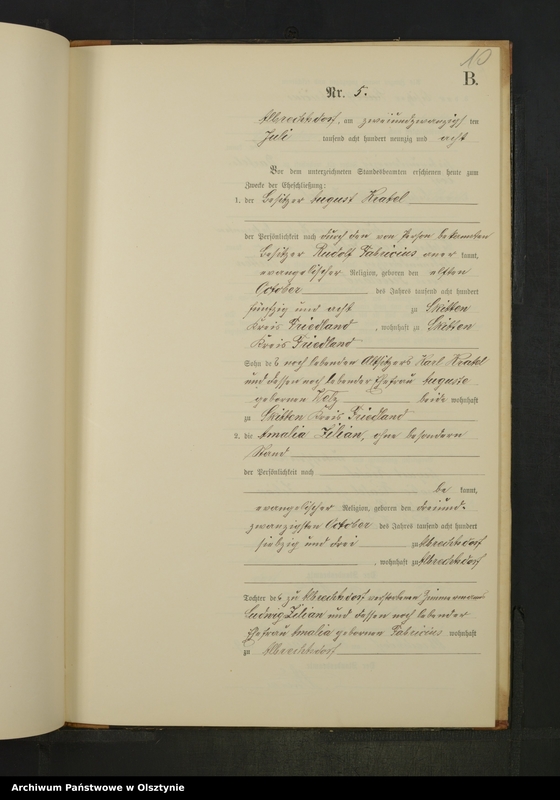 10
B.
Nr. 5.
Albrechtsdorf, am zweiundzwanzigsten ten
Juli tausend acht hundert neunzig und acht
Vor dem unterzeichneten Standesbeamten erschienen heute zum
Zwecke der Eheschließung:
1. der Besitzer August
der Persönlichkeit nach durch den von Person bekannten
Besitzer Rudolf Fabricius aner kannt,
evangelischer Religion, geboren den elften
October des Jahres tausend acht hundert
fünfzig und acht zu Skitten
Kreis Friedland, wohnhaft zu Skitten
Kreis Friedland
Sohn des noch lebenden Altsitzers Karl
und dessen noch lebender Ehefrau Auguste
gebornen beide wohnhaft
zu Skitten Kreis Friedland
2. die Amalia Zilian, ohne besondern
Stand
der Persönlichkeit nach
be kannt,
evangelischer Religion, geboren den dreiund-
zwanzigsten October des Jahres tausend acht hundert
siebzig und drei zu Albrechtsdorf
, wohnhaft zu Albrechtsdorf
Tochter des zu Albrechtsdorf verstorbenen Zimmermann
Ludwig Zilian und dessen noch lebender
Ehefrau Amalia gebornen Fabricius wohnhaft
zu Albrechtsdorf
Archiwum Państwowe w Olsztynie